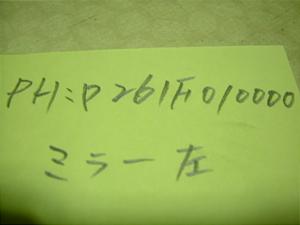 PH:P261F010000
ミラー左